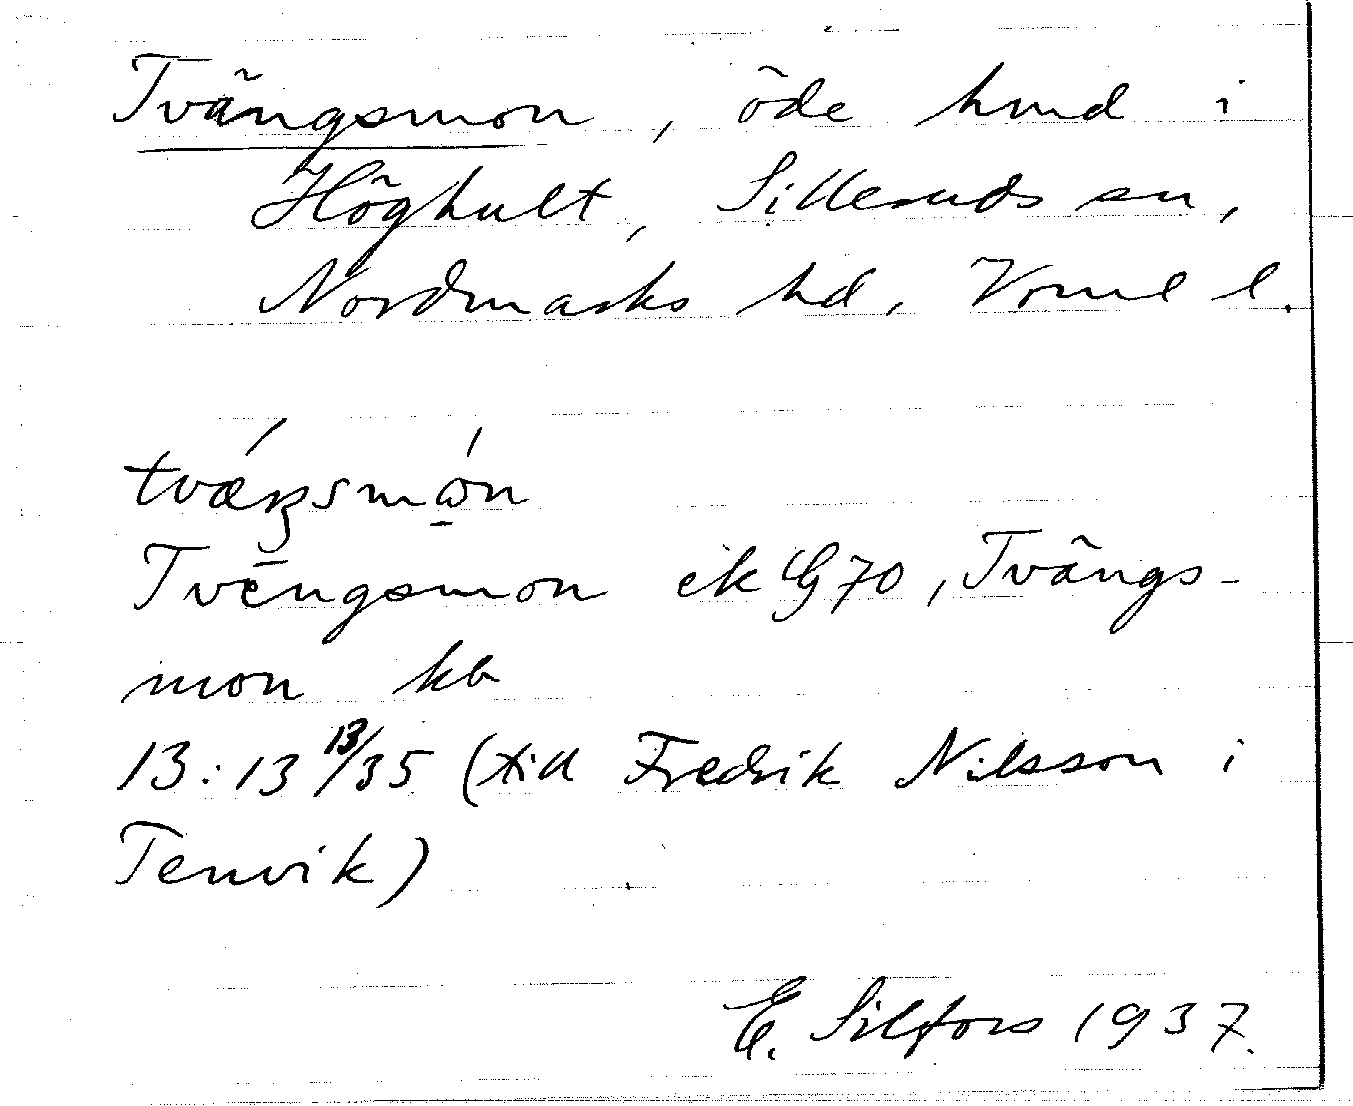 Tvängsmon, öde hmd i
Höghult, Silleruds sn,
Nordmarks hd, Vrml l.
tvǽŋsmǫ́n
Tvēngsmon ek G70, Tvängs-
mon kb
13:13 13/35 (till Fredrik Nilsson i
Tenvik)
E. Silfors 1937.